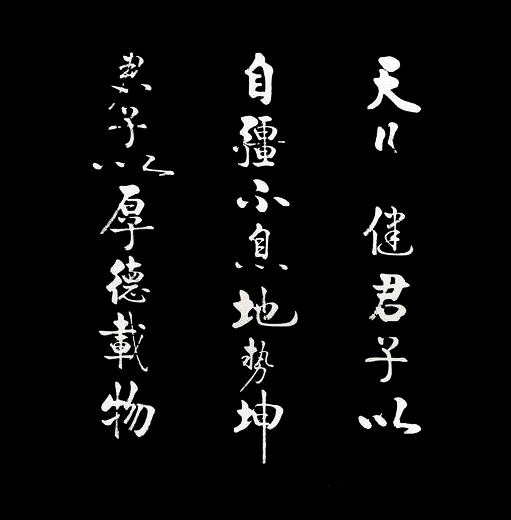 天健君子以
自彊不息地勢坤
子以厚德載物